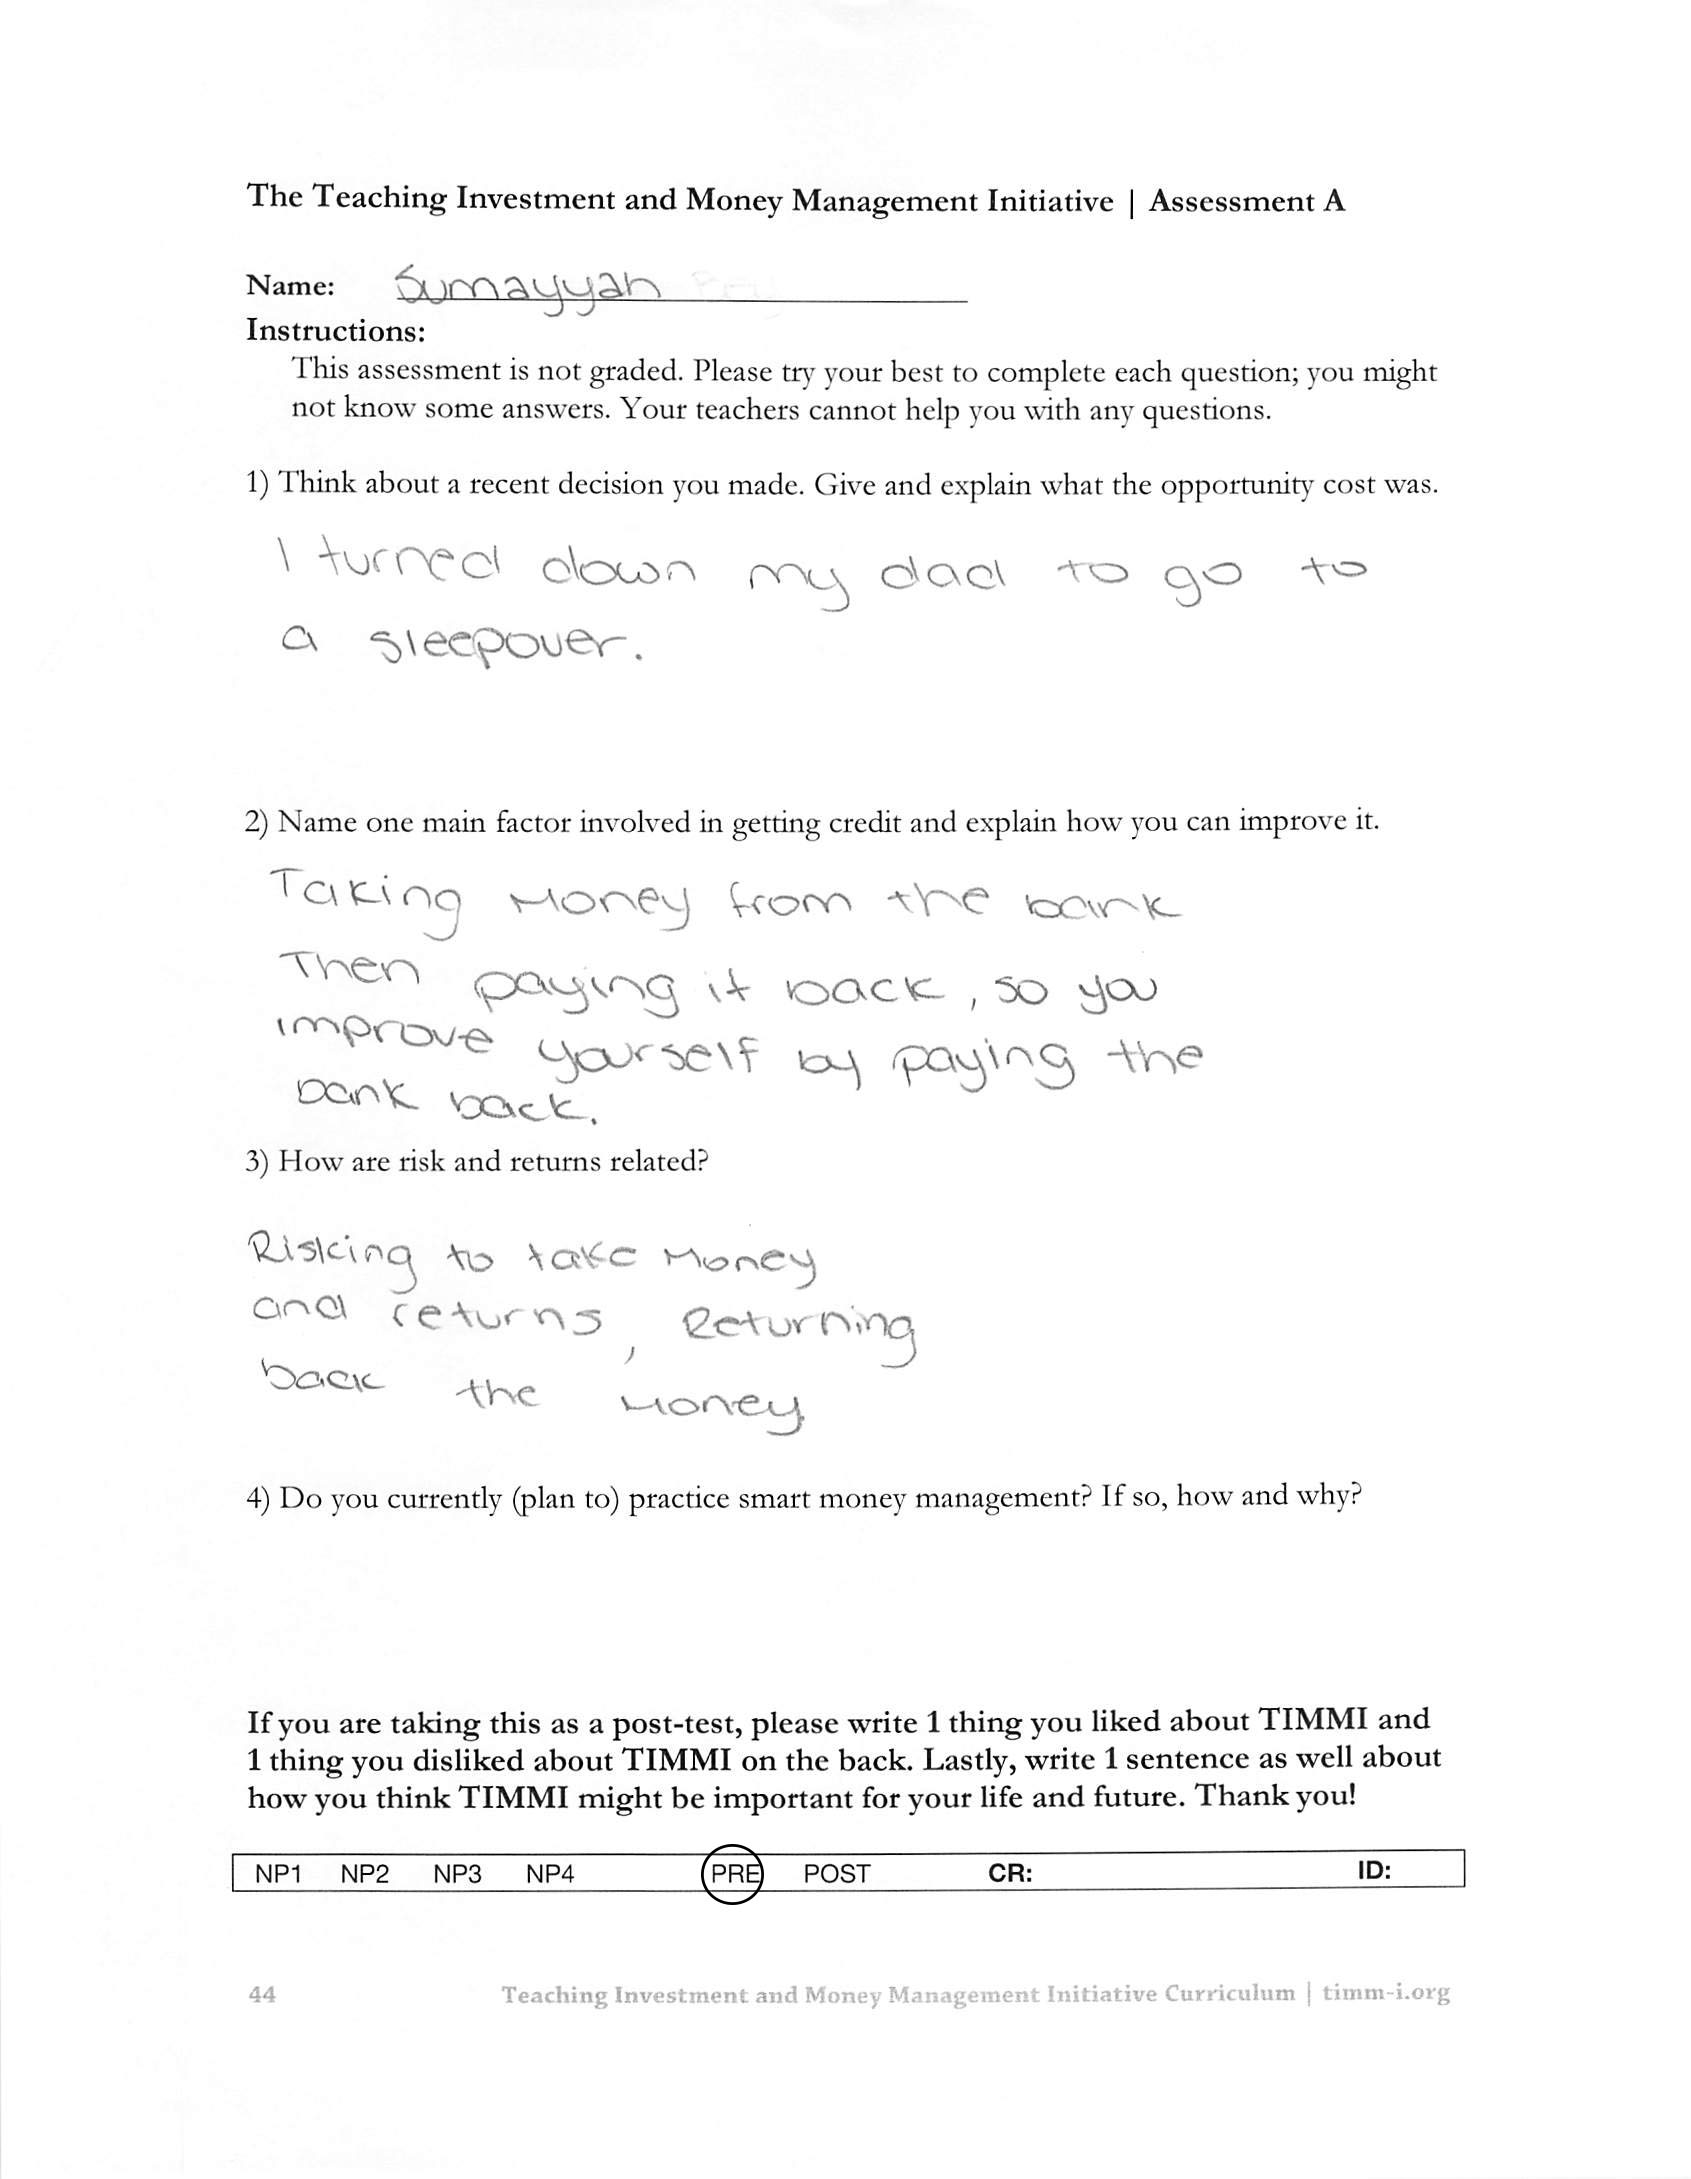 The Teaching Investment and Money Management Initiative | Assessment A
Name: Sumayyah
Instructions:
This assessment is not graded. Please try your best to complete each question; you might
not know some answers. Your teachers cannot help you with any questions.
1) Think about a recent decision you made. Give and explain what the opportunity cost was.
I turned down my dad to go to
a sleepover.
2) Name one main factor involved in getting credit and explain how you can improve it.
Taking Money from the bank
Then paying it back, so you
improve yourself by paying the
bank back.
3) How are risk and returns related?
Risking to take Money
and returns, Returning
back the Money
4) Do you currently (plan to) practice smart money management? If so, how and why?
If you are taking this as a post-test, please write 1 thing you liked about TIMMI and
1 thing you disliked about TIMMI on the back. Lastly, write 1 sentence as well about
how you think TIMMI might be important for your life and future. Thank you!
NP1 NP2 NP3 NP4 PRE POST CR: ID:
44 Teaching Investment and Money Management Initiative Curriculum | timm-i.org